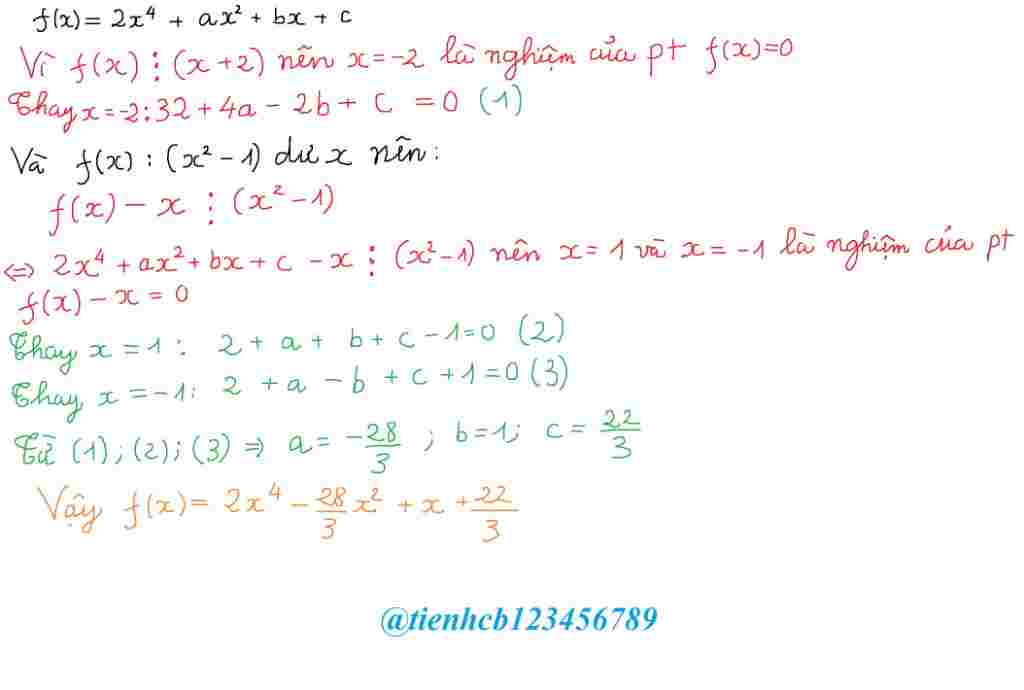 f(x) = 2x⁴ + ax² + bx + c
Vì f(x) ⋮ (x+2) nên x = -2 là nghiệm của pt f(x)=0
Thay x = -2: 32 + 4a - 2b + c = 0 (1)
Và f(x) : (x² - 1) dư x nên:
f(x) - x ⋮ (x² - 1)
⇔ 2x⁴ + ax² + bx + c - x ⋮ (x² - 1) nên x = 1 và x = -1 là nghiệm của pt
f(x) - x = 0
Thay x = 1: 2 + a + b + c - 1 = 0 (2)
Thay x = -1: 2 + a - b + c + 1 = 0 (3)
Từ (1); (2); (3) ⇒ a = -28/3; b = 1; c = 22/3
Vậy f(x) = 2x⁴ - 28/3 x² + x + 22/3
@tienhcb123456789